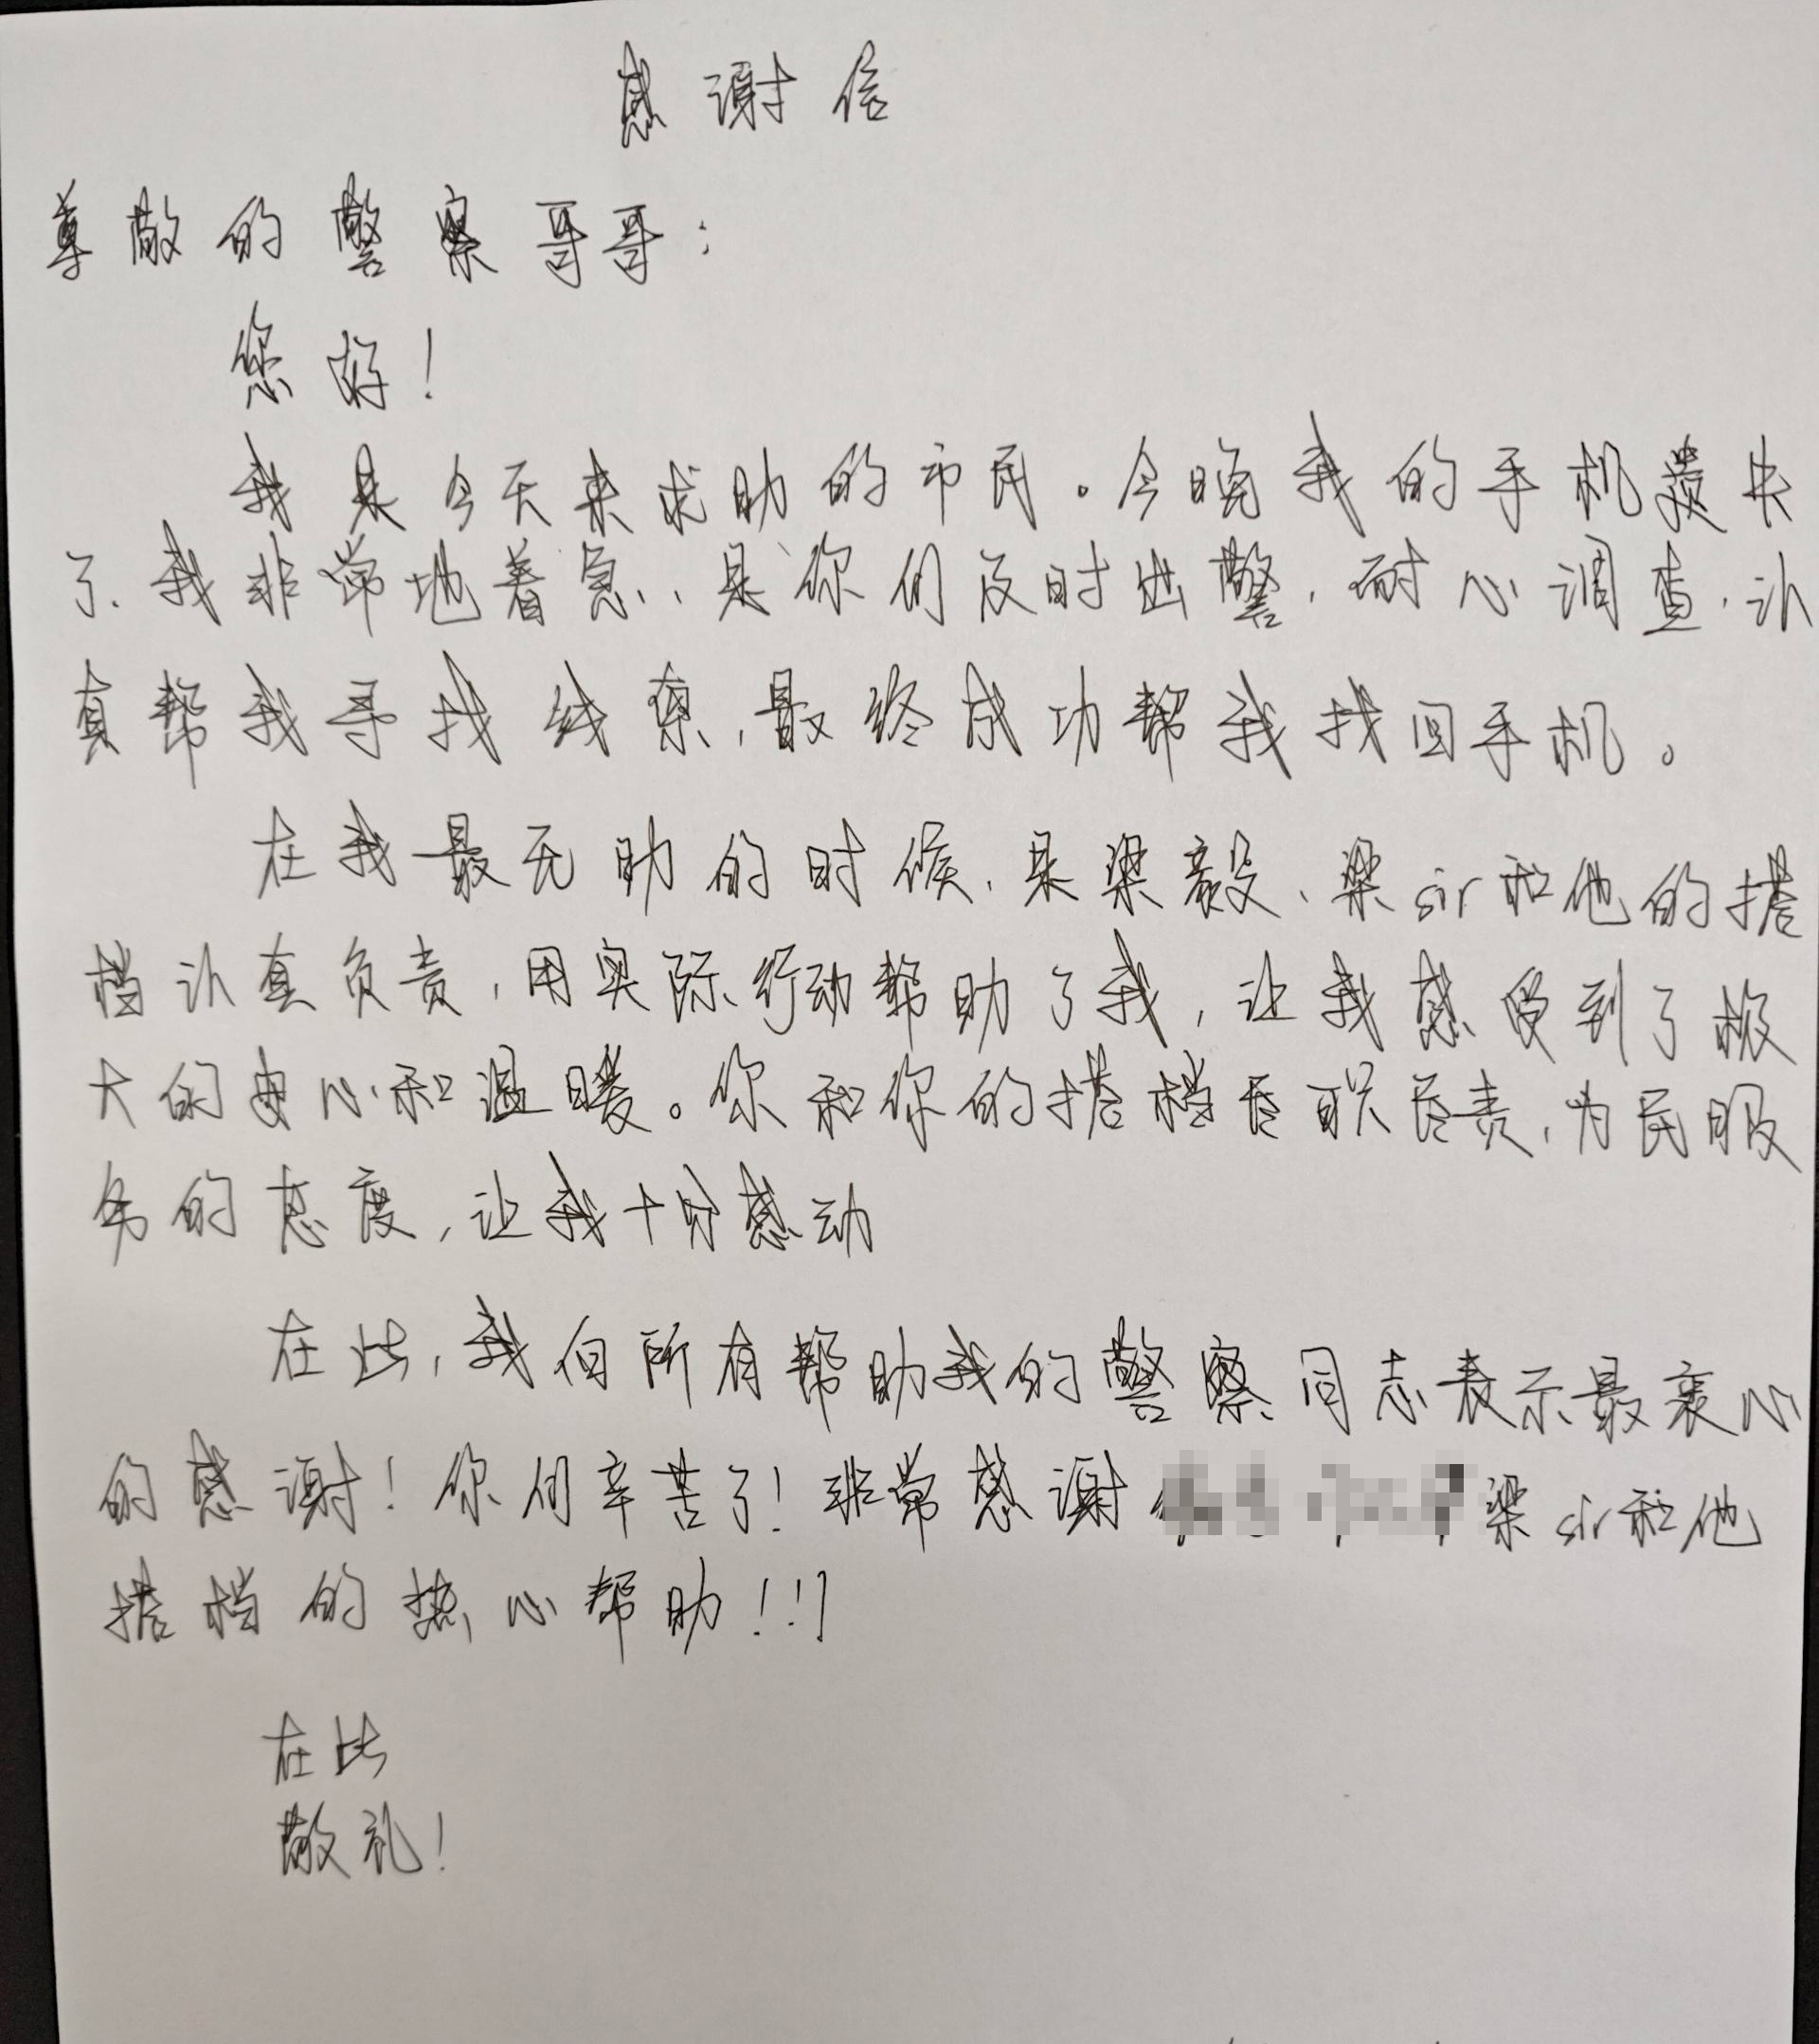 感谢信
尊敬的警察哥哥：
您好！
我是今天来求助的市民。今晚我的手机遗失
了、我非常地着急、是你们及时出警，耐心调查，认
真帮我寻找线索，最终成功帮我找回手机。
在我最无助的时候，是梁毅、梁sir和他的搭
档认真负责，用实际行动帮助了我，让我感受到了极
大的安心和温暖。你和你的搭档尽职尽责，为民服
务的态度，让我十分感动
在此，我向所有帮助我的警察同志表示最衷心
的感谢！你们辛苦了！非常感谢梁sir和他
搭档的热心帮助！！！
在此
敬礼！